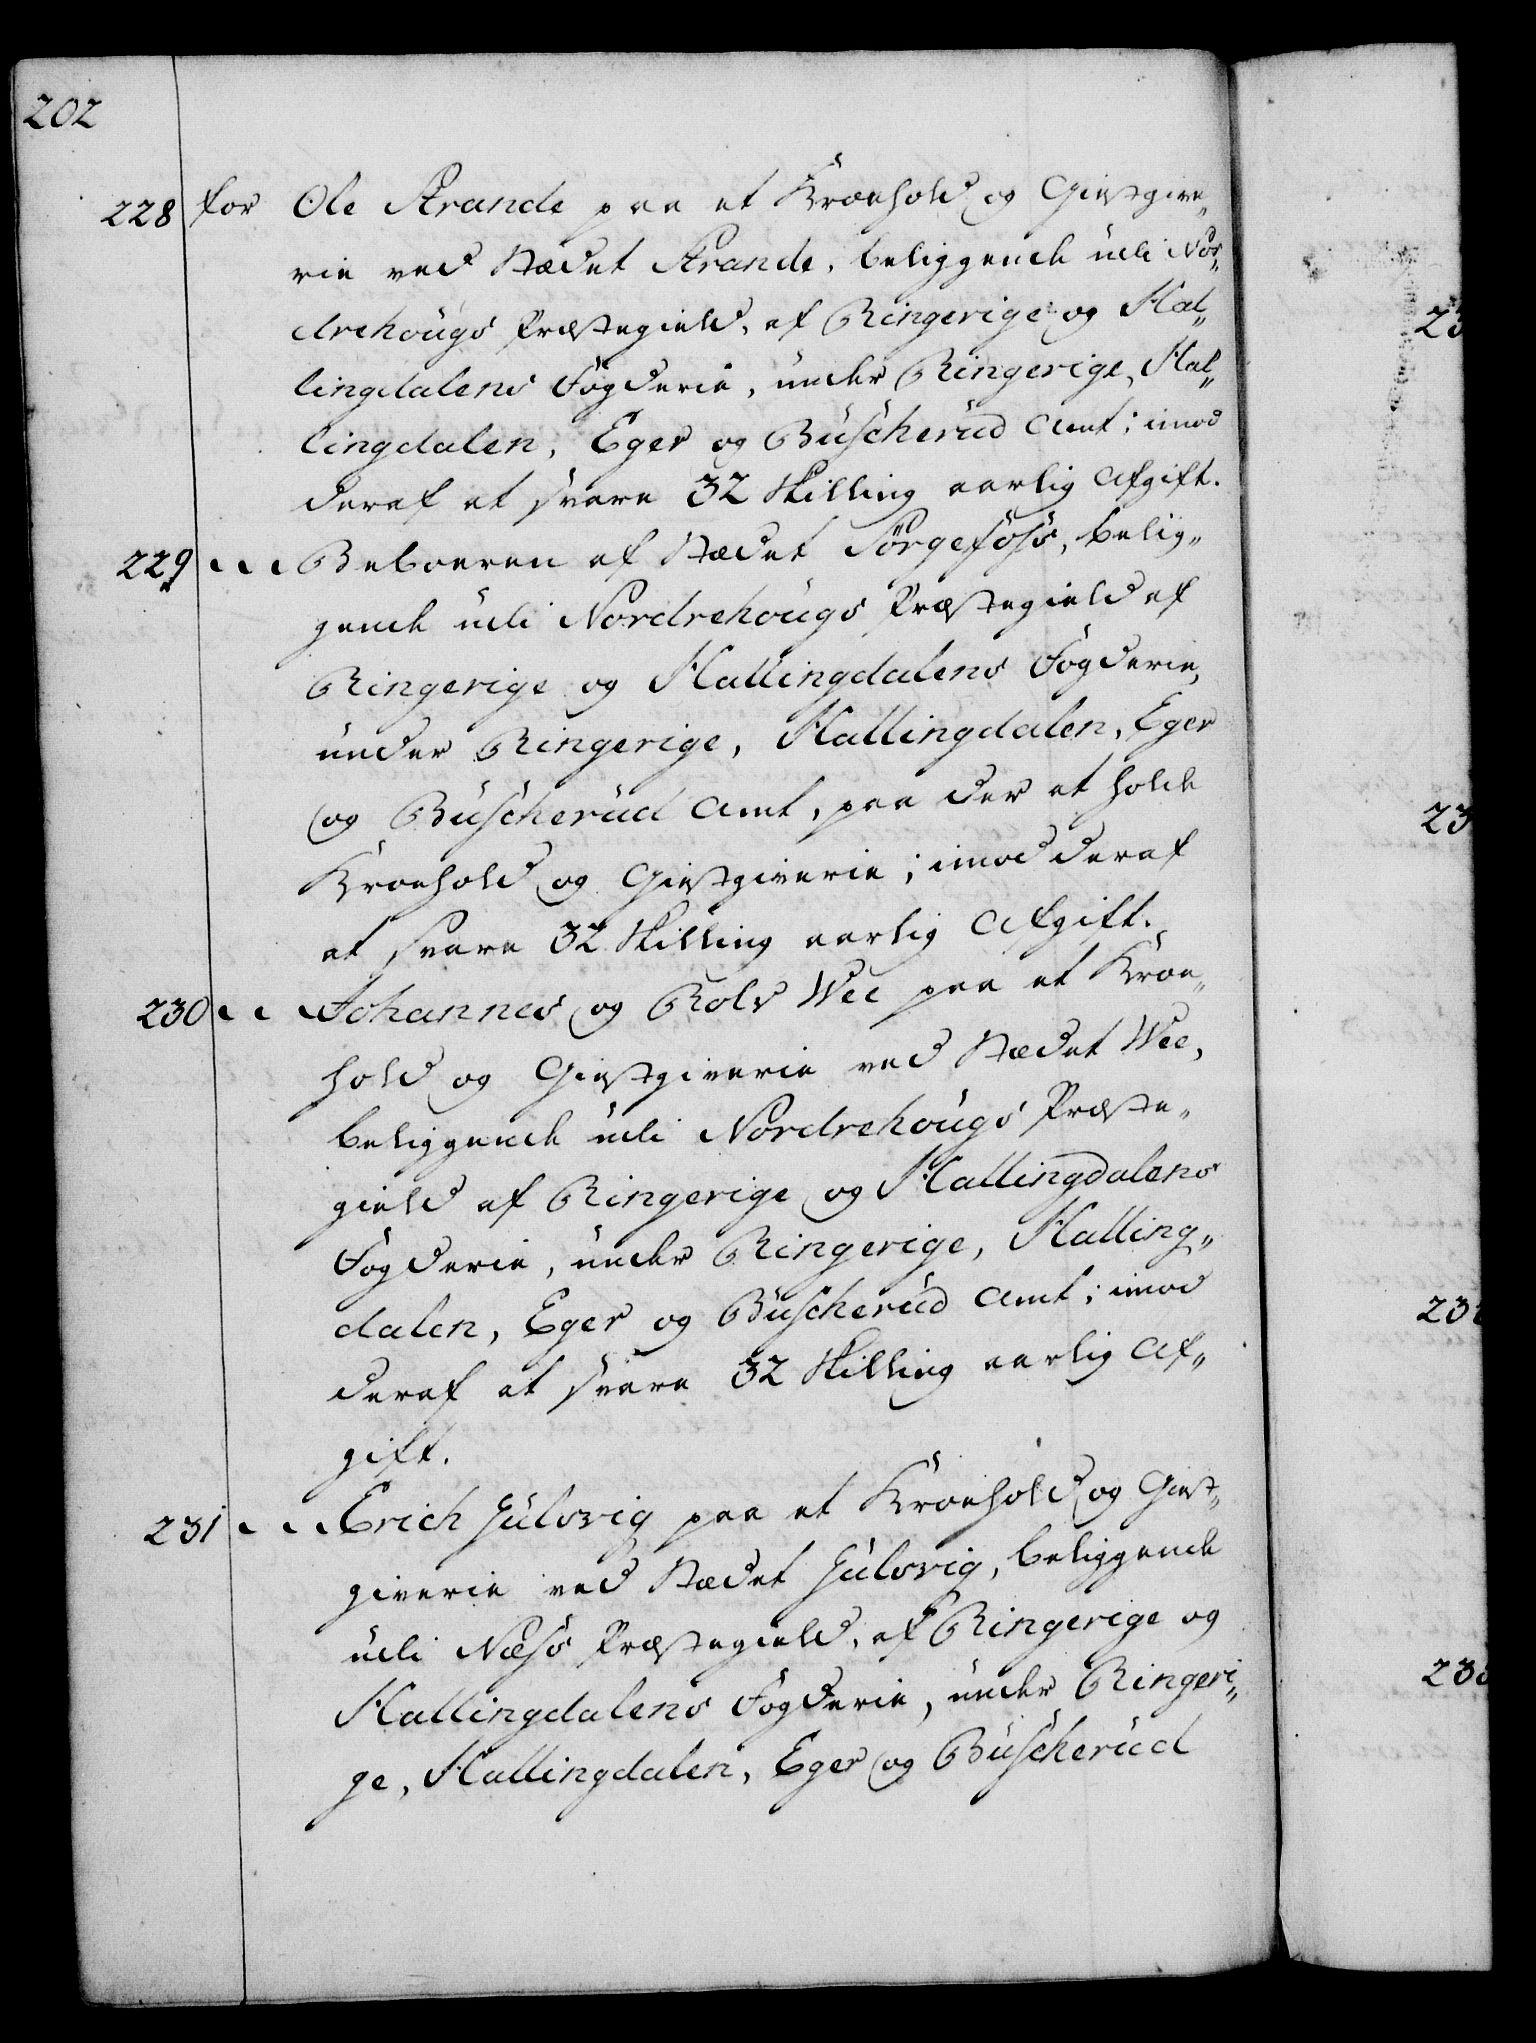 202
228 for Ole Strande paa et Kroehold og Giestgive„
rie ved Stædet Strande, beliggende udi Nor„
drehougs Præstegield, af Ringerige og Hal„
lingdalens Fogderie, under Ringerige, Hal„
lingdalen, Eger og Buscherud Amt; imod
deraf at svare 32 Skilling aarlig Afgift.
229 Beboeren af Stædet Sørgefoss, belig„
gende udi Nordrehougs Præstegield af
Ringerige og Hallingdalens Fogderie,
under Ringerige, Hallingdalen, Eger
og Buscherud Amt, paa der at holde
Kroehold og Giestgiverie; imod deraf
at svare 32 Skilling aarlig Afgift.
230 Johannes og Rolv Wee paa et Kroe„
hold og Giestgiverie ved Stædet Wee,
beliggende udi Nordrehougs Præste„
gield af Ringerige og Hallingdalens
Fogderie, under Ringerige, Halling„
dalen, Eger og Buscherud Amt; imod
deraf at svare 32 Skilling aarlig Af„
gift.
231 Erich Gulsvig paa et Kroehold og Giest„
giverie ved Stædet Gulsvig, beliggende
udi Næss Præstegield, af Ringerige og
Hallingdalens Fogderie, under Ringeri„
ge, Hallingdalen, Eger og Buscherud